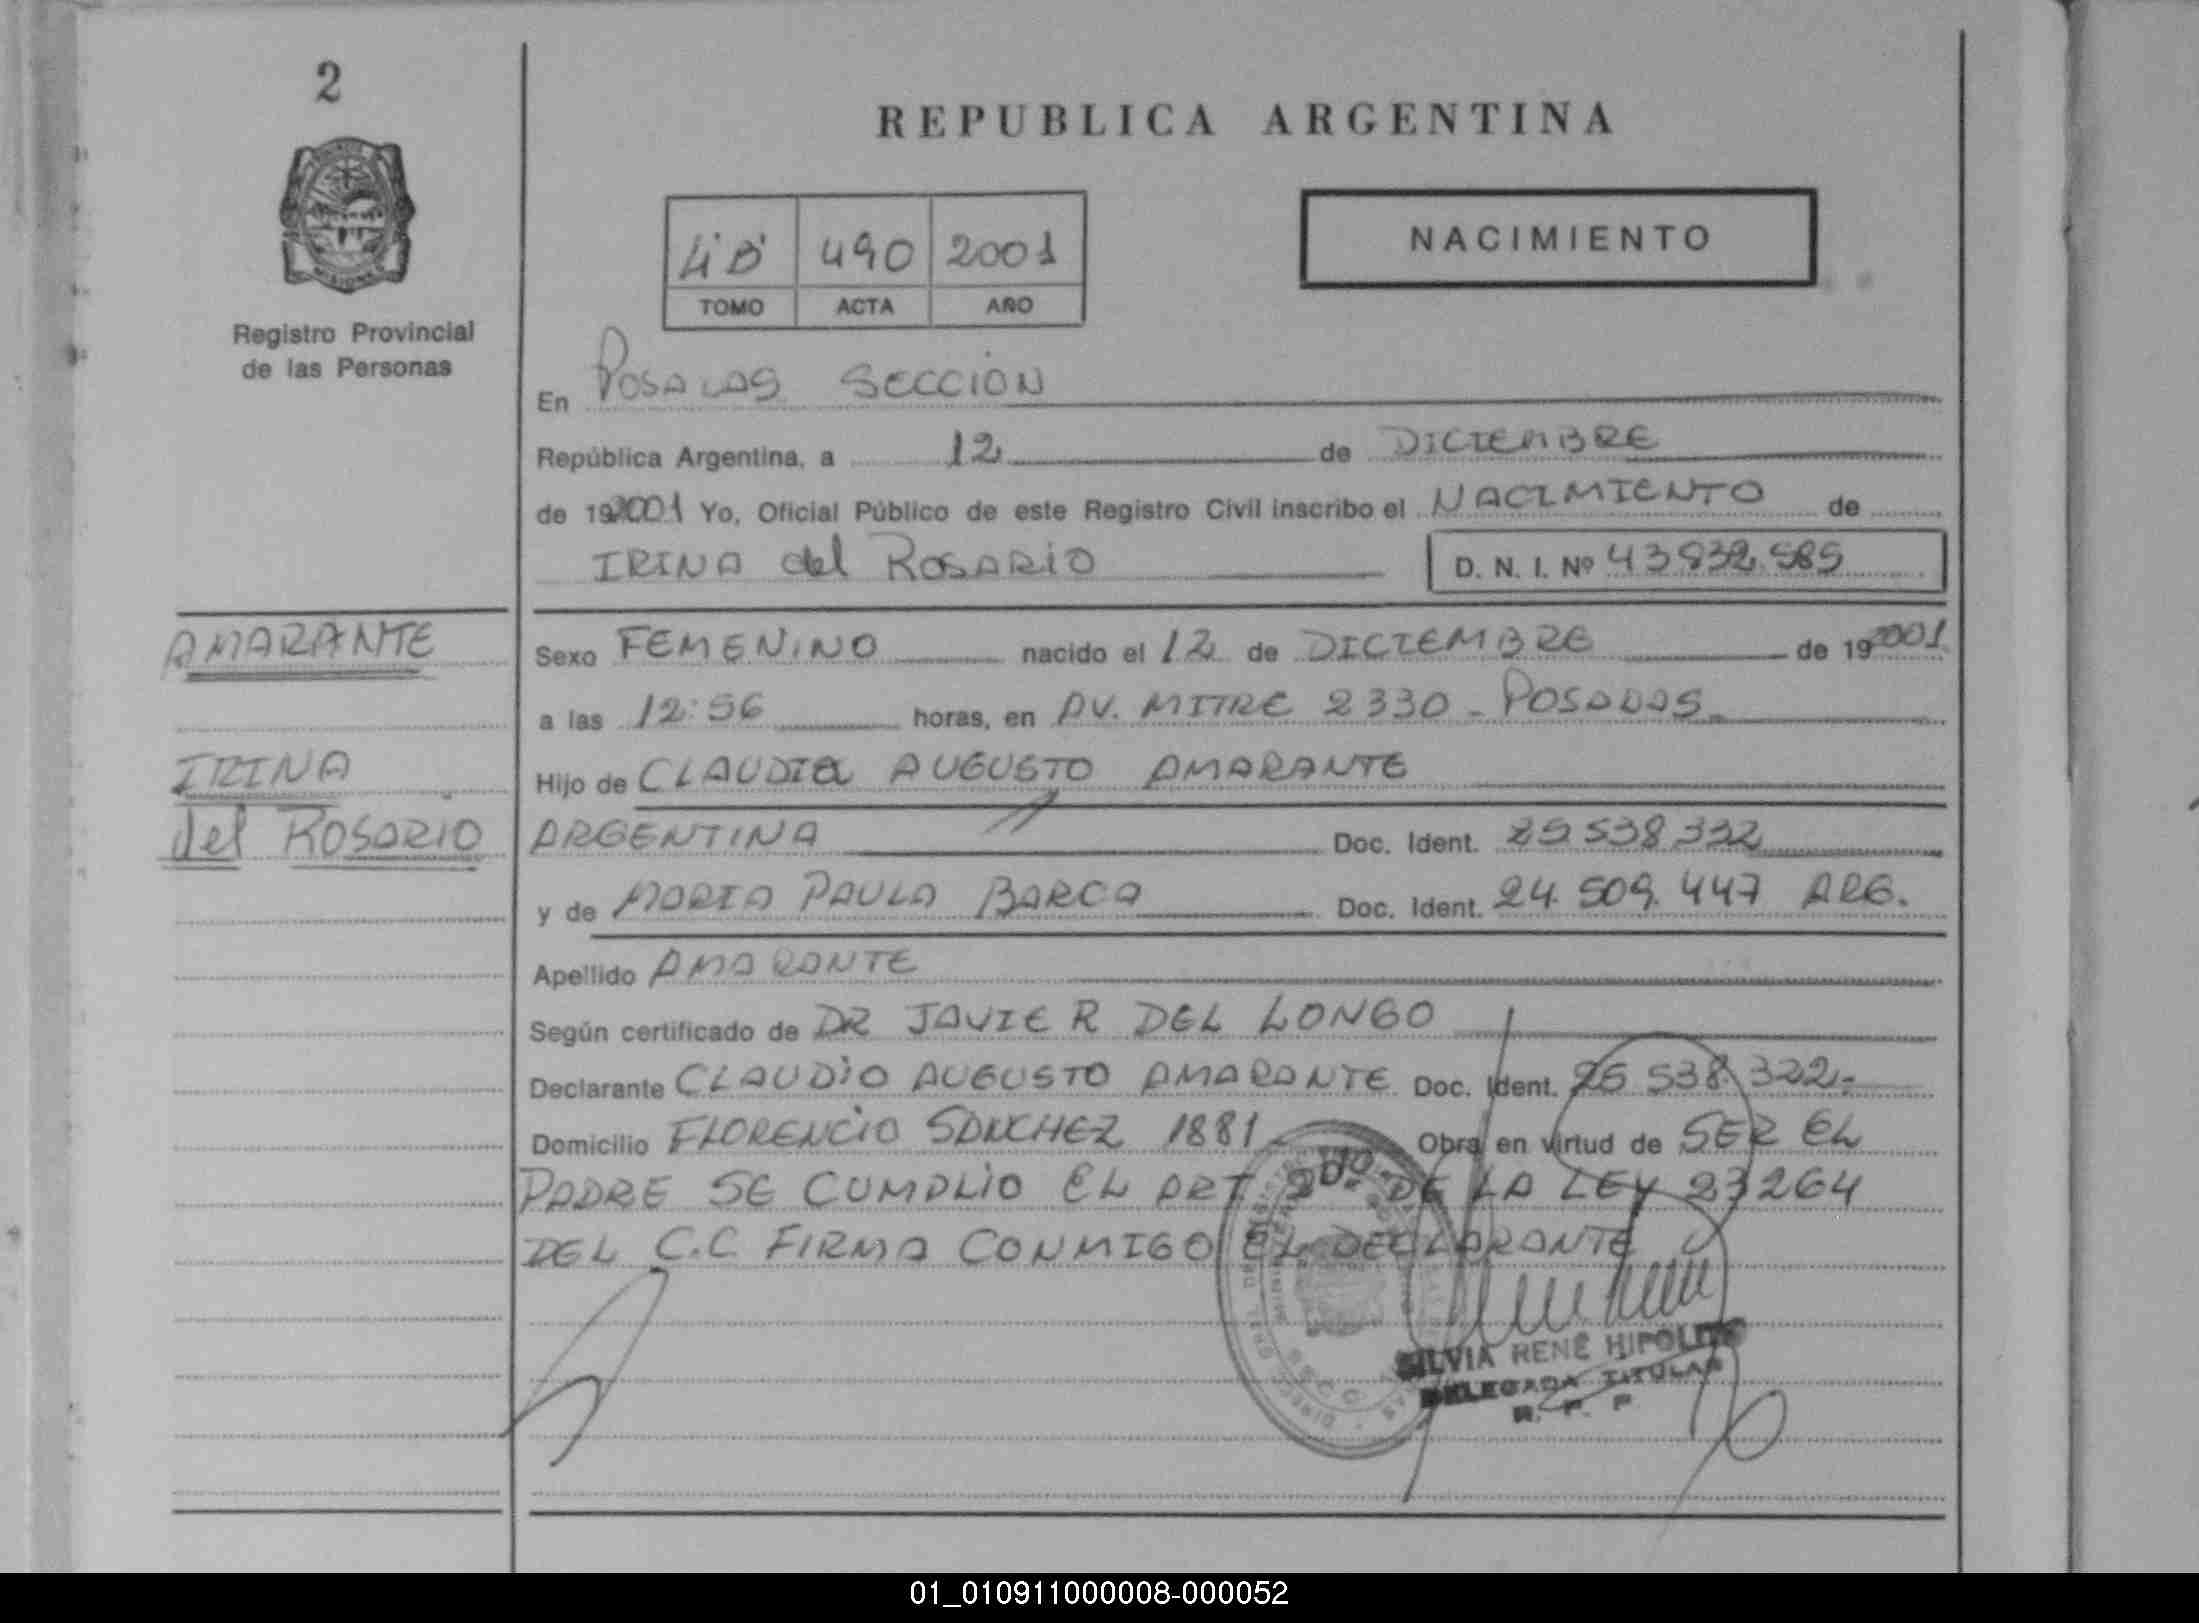 2
REPUBLICA ARGENTINA
NACIMIENTO
4'B' 490 2001
TOMO ACTA AÑO
Registro Provincial
de las Personas
En POSADAS SECCION
República Argentina, a 12 de DICIEMBRE
de 192001 Yo, Oficial Público de este Registro Civil inscribo el NACIMIENTO de
IRINA del ROSARIO D. N. I. Nº 43 832 585
AMARANTE
Sexo FEMENINO nacido el 12 de DICIEMBRE de 192001
a las 12:56 horas, en AV. MITRE 2330 - POSADAS
IRINA
del ROSARIO
Hijo de CLAUDIO AUGUSTO AMARANTE
ARGENTINA Doc. Ident. 25 538 332
y de MARIA PAULA BARCA Doc. Ident. 24 509 447 ARG.
Apellido AMARANTE
Según certificado de DR JAVIER DEL LONGO
Declarante CLAUDIO AUGUSTO AMARANTE Doc. Ident. 25 538 322-
Domicilio FLORENCIO SANCHEZ 1881 Obra en virtud de SER EL
PADRE SE CUMPLIO EL ART DE LA LEY 23264
DEL C.C FIRMA CONMIGO EL DECLARANTE
SILVIA RENÉ HIPOLITO
DELEGADA TITULAR
R. P. P
01_010911000008-000052